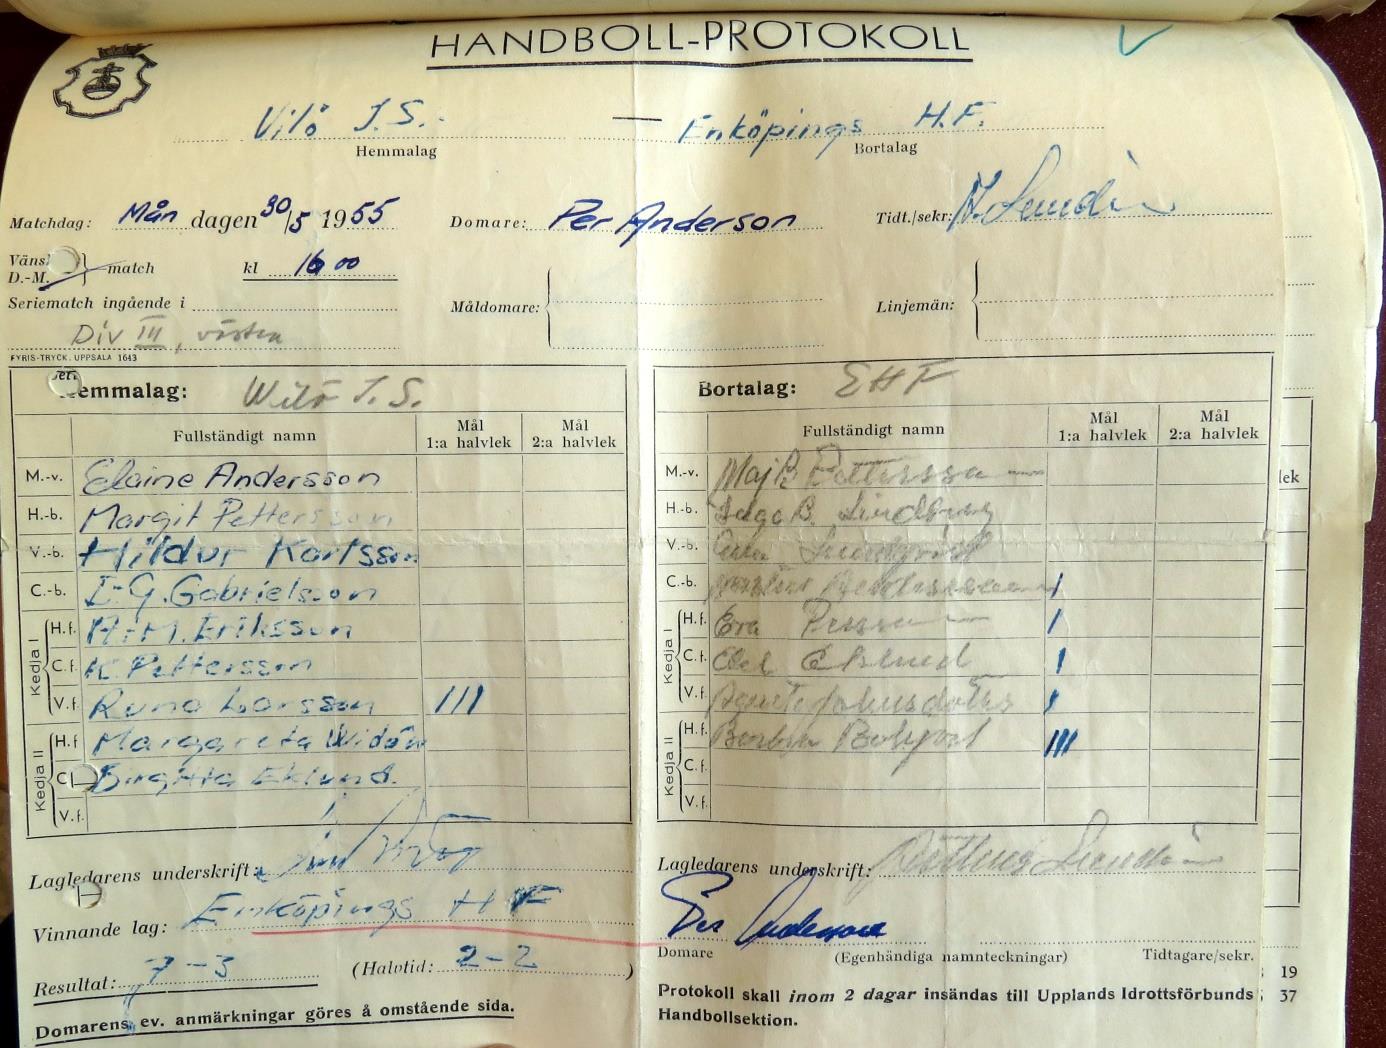 HANDBOLL-PROTOKOLL
Vilö I.S. — Enköpings H.F.
Hemmalag Bortalag
Matchdag: Mån dagen 30/5 1955 Domare: Per Anderson Tidt./sekr: Sundin
Väns
D.-M. } match kl 16 00 Måldomare: Linjemän:
Seriematch ingående i
Div III, västra
FYRIS-TRYCK. UPPSALA 1643
Hemmalag: Wilö I.S. Bortalag: EHF
Fullständigt namn Mål 1:a halvlek Mål 2:a halvlek Fullständigt namn Mål 1:a halvlek Mål 2:a halvlek
lek
M.-v. Elaine Andersson M.-v. Maj B. Pettersson
H.-b. Margit Pettersson H.-b. Inga B. Lindberg
V.-b. Hildur Karlsson V.-b. Sundqvist
C.-b. I-G. Gabrielsson C.-b. I
Kedja I H.f. A-M. Eriksson Kedja I H.f. Eva Persson I
C.f. K. Pettersson C.f. Eklund I
V.f. Runa Larsson III V.f. Agneta Johnsdotter I
Kedja II H.f Margareta Widén Kedja II H.f. Barbro III
C Birgitta Eklund. C.f.
V.f. V.f.
Lagledarens underskrift: Lagledarens underskrift: Sundin
Vinnande lag: Enköpings HF Per Anderson
Domare (Egenhändiga namnteckningar) Tidtagare/sekr.
Resultat: 7-3 (Halvtid: 2-2)
19
Domarens ev. anmärkningar göres å omstående sida.
Protokoll skall inom 2 dagar insändas till Upplands Idrottsförbunds 37
Handbollsektion.